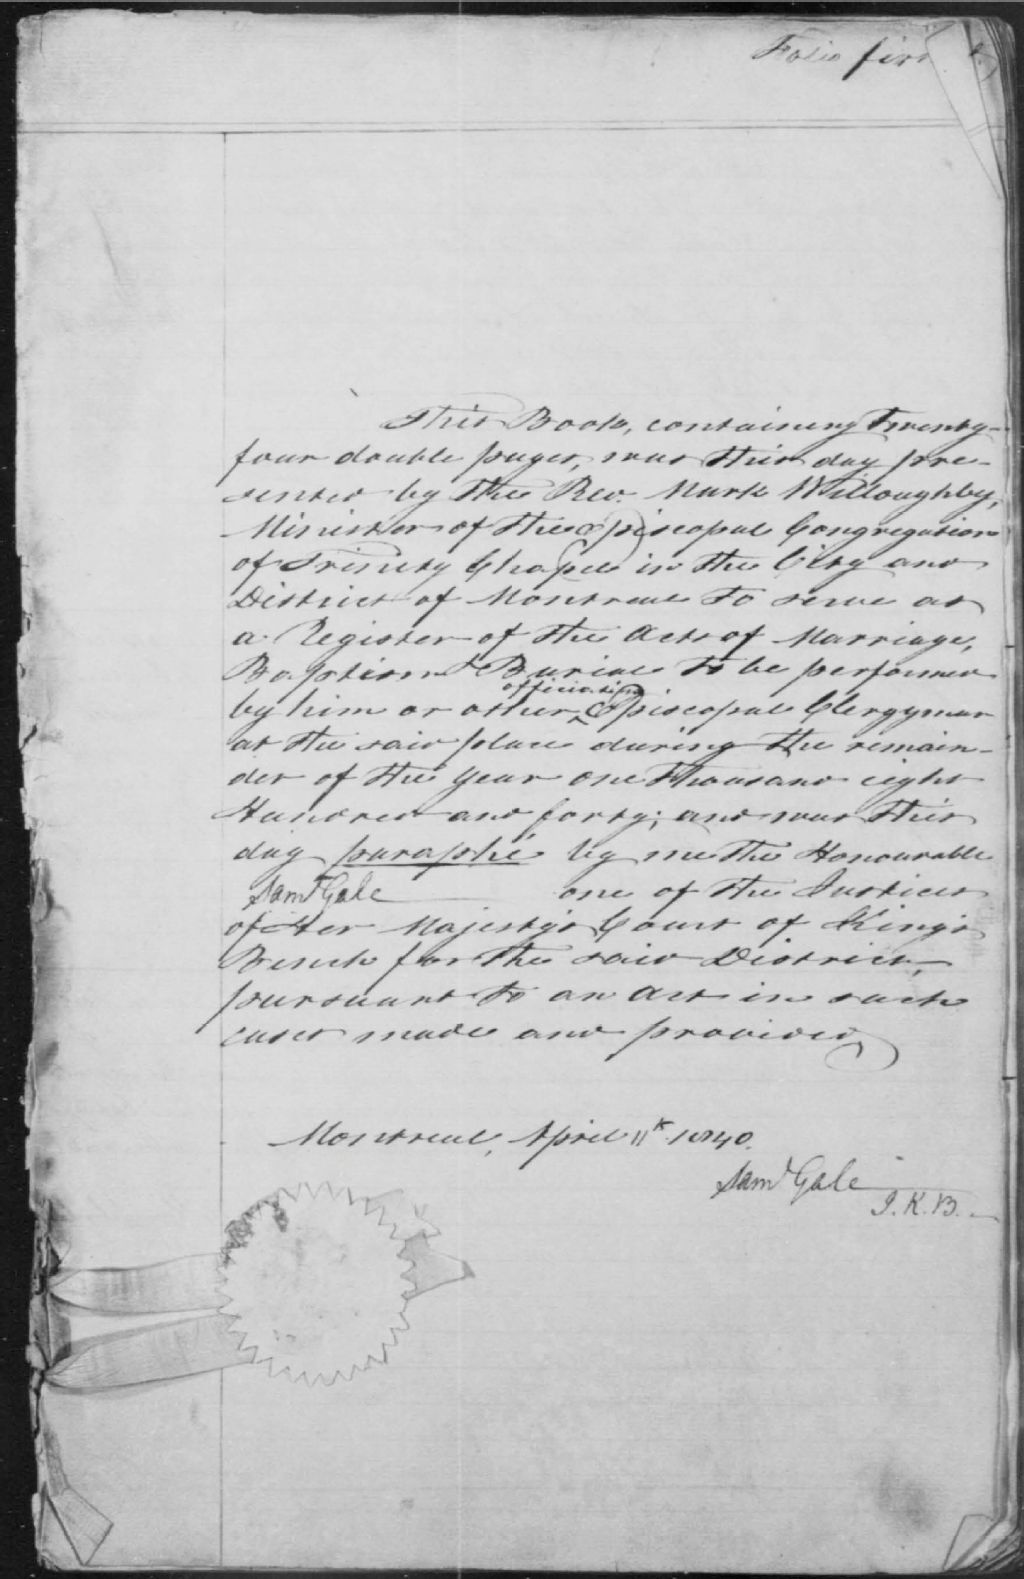 Folio first
This Book, containing Twenty-
four double pages, was this day pre-
sented by the Rev. Mark Willoughby,
Minister of the Episcopal Congregation
of Trinity Chapel in the City and
District of Montreal to serve as
a Register of the Acts of Marriage,
Baptism & Burial to be performed
officiating
by him or other ^ Episcopal Clergyman
at the said place during the remain-
der of the year one thousand eight
Hundred and forty; and was this
day paraphé by me the Honourable
Saml Gale one of the Justices
of Her Majesty's Court of King's
Bench for the said District,
pursuant to an Act in such
cases made and provided
Montreal, April 11th 1840.
Saml Gale
J. K. B.